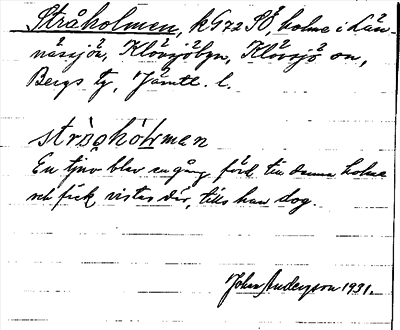 Stråholmen, k G72 SÖ, holme i Län-
nässjön, Klövsjöbyn, Klövsjö sn,
Bergs tg, Jämtl. l.
strǡohoḷmen
En tjuv blev en gång förd till denna holme
och fick vistas där, tills han dog.
John Andersson 1931.